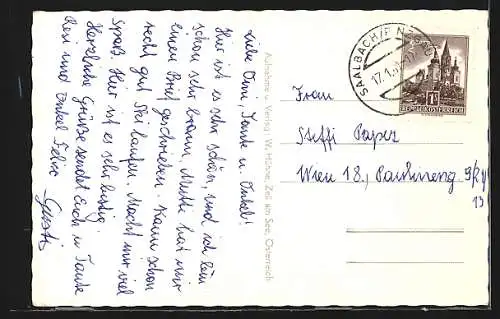 Liebe Omi, Tante u. Onkel!
Hier ist es sehr schön, und ich bin
schon sehr braun, Mutti hat mir
einen Brief geschrieben. Kann schon
recht gut Ski laufen. Macht mir viel
Spaß. Hier ist es sehr lustig.
Herzliche Grüße sendet Euch u. Tante
Resi und Onkel Felix
Aufnahme u. Verlag: W. Hühne, Zell am See, Österreich
SAALBACH/P
17.1.
1S
REPUBLIK ÖSTERREICH
Frau
Steffi Paper
Wien 18.,
13